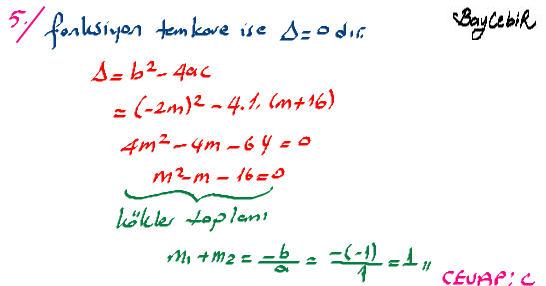 5./ fonksiyon tamkare ise Δ=0 dır.
BayCebiR
Δ = b² - 4ac
= (-2m)² - 4.1.(m+16)
4m² - 4m - 64 = 0
m² - m - 16 = 0
kökler toplamı
m₁ + m₂ = -b/a = -(-1)/1 = 1 //
CEVAP: C